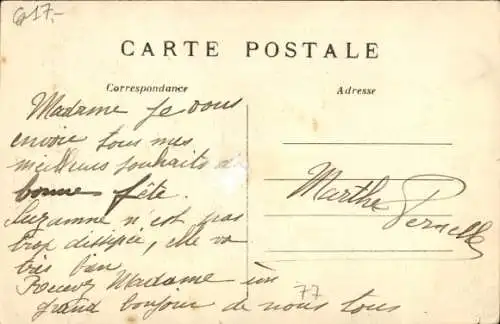 617.-
CARTE POSTALE
Correspondance
Adresse
Madame je vous
envoie tous mes
meilleurs souhaits de
bonne fête.
Suzanne n'est pas
trop dissipée, elle va
très bien
Recevez Madame un
grand bonjour de nous tous
Marthe
77